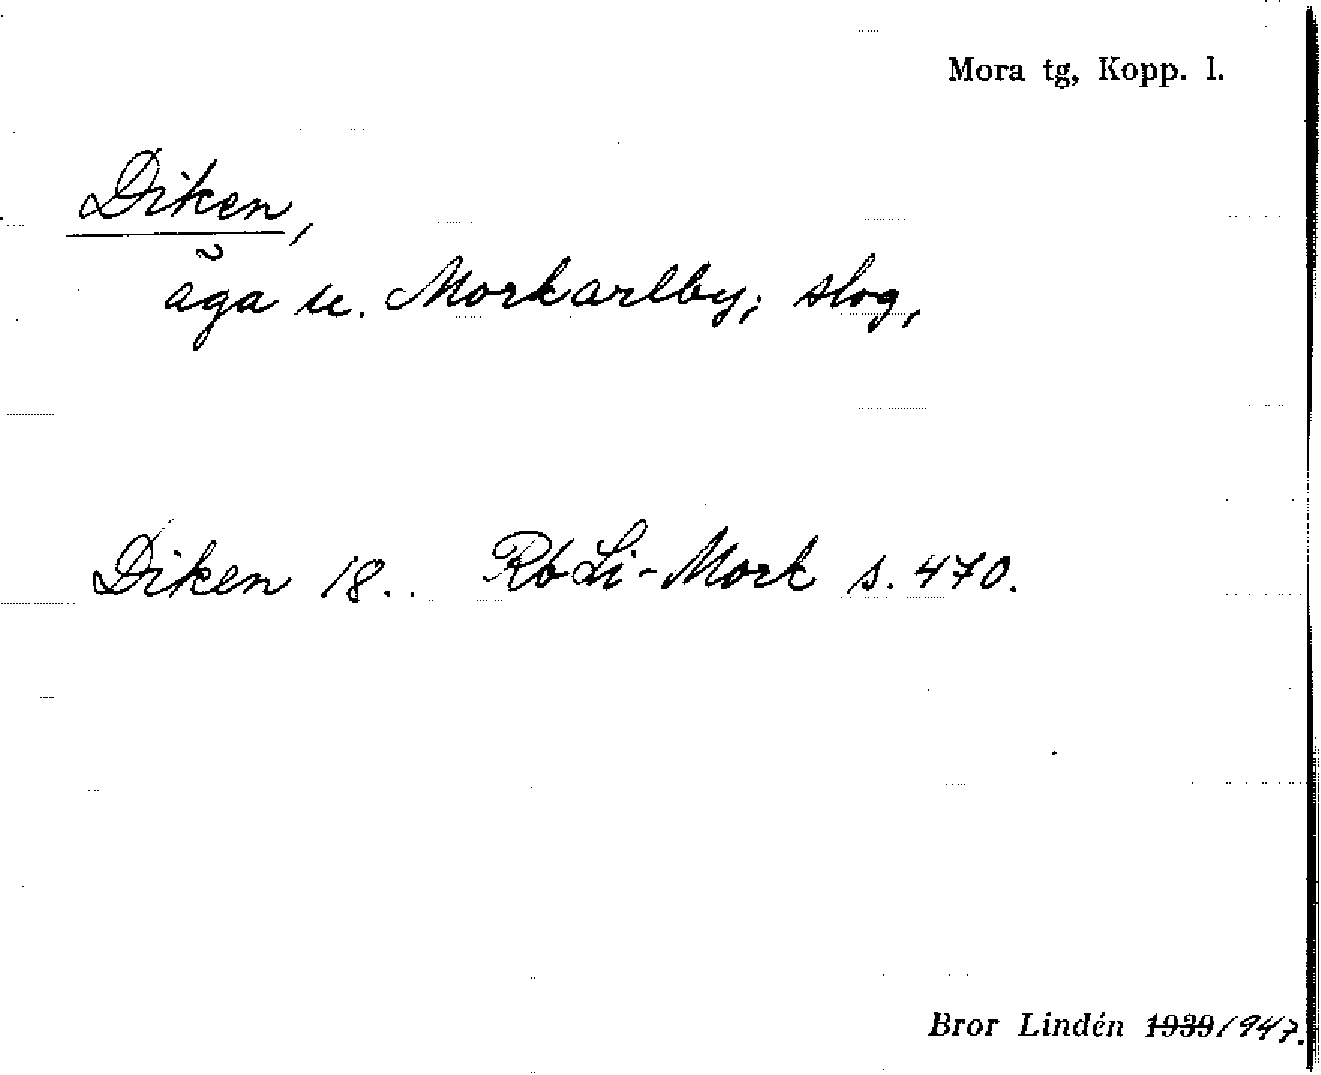 Mora tg, Kopp. l.
Diken,
äga u. Morkarlby; slog,
Diken 18.. Rb Li-Mork s. 470.
Bror Lindén 1939 1947.